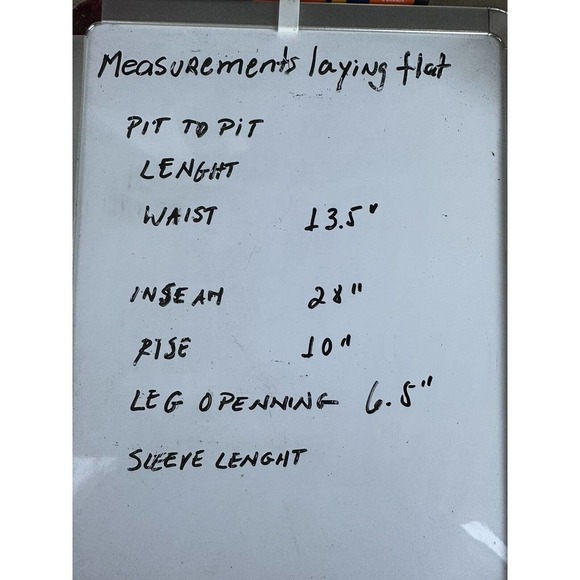 Measurements laying flat
PIT TO PIT
LENGHT
WAIST 13.5"
INSEAM 28"
RISE 10"
LEG OPENNING 6.5"
SLEEVE LENGHT